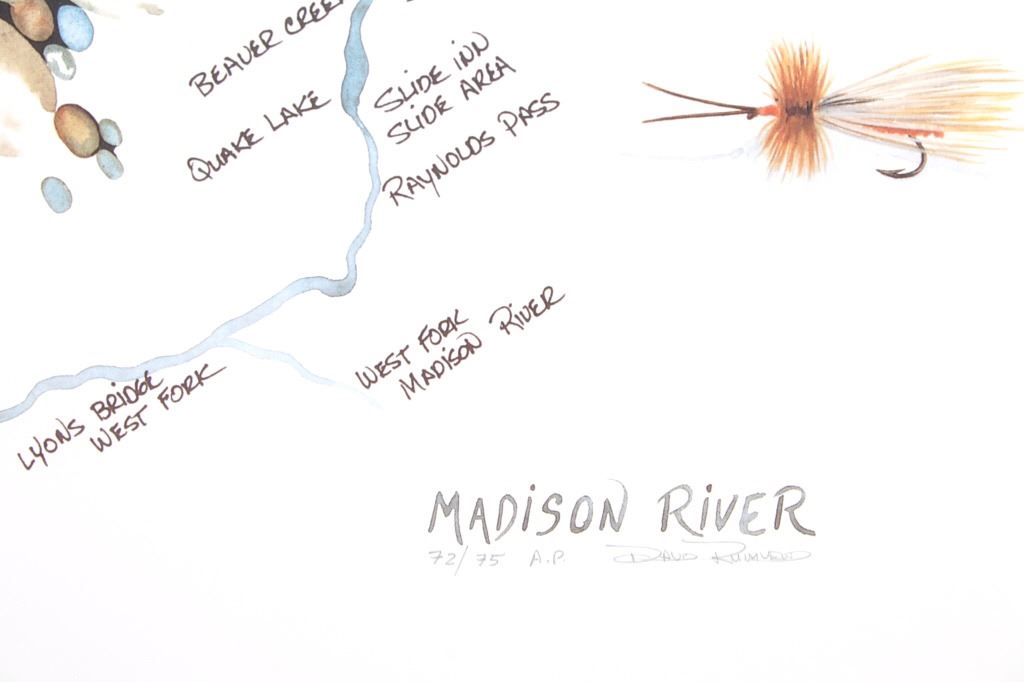 BEAVER CREE
QUAKE LAKE
SLIDE INN
SLIDE AREA
RAYNOLDS PASS
WEST FORK
MADISON RIVER
LYONS BRIDGE
WEST FORK
MADISON RIVER
72/75 A.P. DAVID